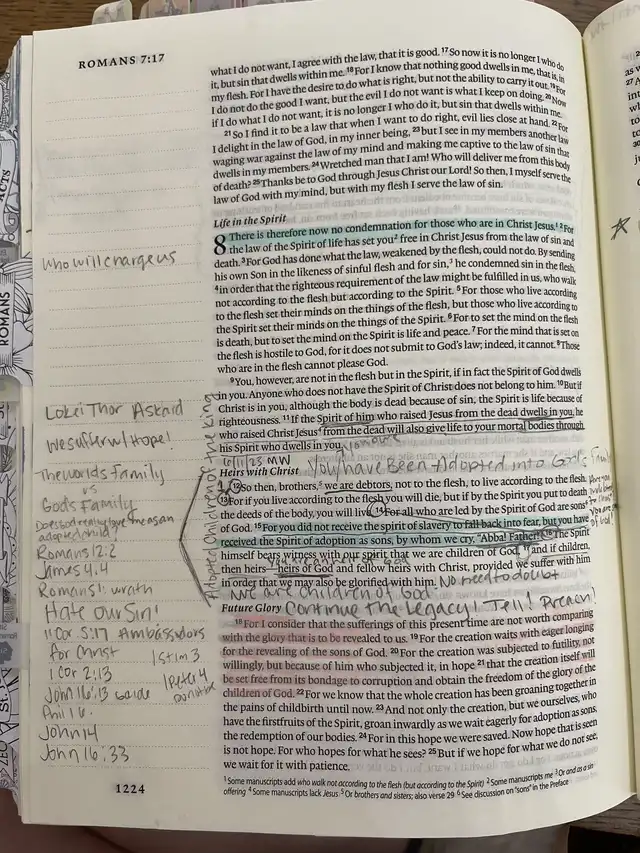 ROMANS 7:17
what I do not want, I agree with the law, that it is good. 17 So now it is no longer I who do
it, but sin that dwells within me. 18 For I know that nothing good dwells in me, that is, in
my flesh. For I have the desire to do what is right, but not the ability to carry it out. 19 For
I do not do the good I want, but the evil I do not want is what I keep on doing. 20 Now
if I do what I do not want, it is no longer I who do it, but sin that dwells within me.
21 So I find it to be a law that when I want to do right, evil lies close at hand. 22 For
I delight in the law of God, in my inner being, 23 but I see in my members another law
waging war against the law of my mind and making me captive to the law of sin that
dwells in my members. 24 Wretched man that I am! Who will deliver me from this body
of death? 25 Thanks be to God through Jesus Christ our Lord! So then, I myself serve the
law of God with my mind, but with my flesh I serve the law of sin.
Life in the Spirit
8 There is therefore now no condemnation for those who are in Christ Jesus.1 2 For
the law of the Spirit of life has set you2 free in Christ Jesus from the law of sin and
death. 3 For God has done what the law, weakened by the flesh, could not do. By sending
his own Son in the likeness of sinful flesh and for sin,3 he condemned sin in the flesh,
4 in order that the righteous requirement of the law might be fulfilled in us, who walk
not according to the flesh but according to the Spirit. 5 For those who live according
to the flesh set their minds on the things of the flesh, but those who live according to
the Spirit set their minds on the things of the Spirit. 6 For to set the mind on the flesh
is death, but to set the mind on the Spirit is life and peace. 7 For the mind that is set on
the flesh is hostile to God, for it does not submit to God's law; indeed, it cannot. 8 Those
who are in the flesh cannot please God.
9 You, however, are not in the flesh but in the Spirit, if in fact the Spirit of God dwells
in you. Anyone who does not have the Spirit of Christ does not belong to him. 10 But if
Christ is in you, although the body is dead because of sin, the Spirit is life because of
righteousness. 11 If the Spirit of him who raised Jesus from the dead dwells in you, he
who raised Christ Jesus4 from the dead will also give life to your mortal bodies through
his Spirit who dwells in you.
MW
You have Been Adopted into God's Family
Heirs with Christ
12 So then, brothers,5 we are debtors, not to the flesh, to live according to the flesh.
13 For if you live according to the flesh you will die, but if by the Spirit you put to death
the deeds of the body, you will live. 14 For all who are led by the Spirit of God are sons6
of God. 15 For you did not receive the spirit of slavery to fall back into fear, but you have
received the Spirit of adoption as sons, by whom we cry, "Abba! Father!" 16 The Spirit
himself bears witness with our spirit that we are children of God, 17 and if children,
then heirs—heirs of God and fellow heirs with Christ, provided we suffer with him
in order that we may also be glorified with him. No need to doubt
we are children of God
Future Glory Continue the Legacy! Tell! Preach!
18 For I consider that the sufferings of this present time are not worth comparing
with the glory that is to be revealed to us. 19 For the creation waits with eager longing
for the revealing of the sons of God. 20 For the creation was subjected to futility, not
willingly, but because of him who subjected it, in hope 21 that the creation itself will
be set free from its bondage to corruption and obtain the freedom of the glory of the
children of God. 22 For we know that the whole creation has been groaning together in
the pains of childbirth until now. 23 And not only the creation, but we ourselves, who
have the firstfruits of the Spirit, groan inwardly as we wait eagerly for adoption as sons,
the redemption of our bodies. 24 For in this hope we were saved. Now hope that is seen
is not hope. For who hopes for what he sees? 25 But if we hope for what we do not see,
we wait for it with patience.
1 Some manuscripts add who walk not according to the flesh (but according to the Spirit) 2 Some manuscripts me 3 Or and as a sin
offering 4 Some manuscripts lack Jesus 5 Or brothers and sisters; also verse 29 6 See discussion on "sons" in the Preface
1224
who will charge us
Loki Thor Asgard
We suffer w/ Hope!
The worlds Family
vs
God's Family
adopted child
Romans 12:2
James 4.4
Romans 1: wrath
Hate our Sin!
11 Cor 5:17 Ambassadors
for Christ
1 Cor 2:13
John 16:13 Guide
Phil 1:6
John 14
John 16:33
1 Tim 3
1 Peter 4
Adopted Children of the King
ACTS
ROMANS